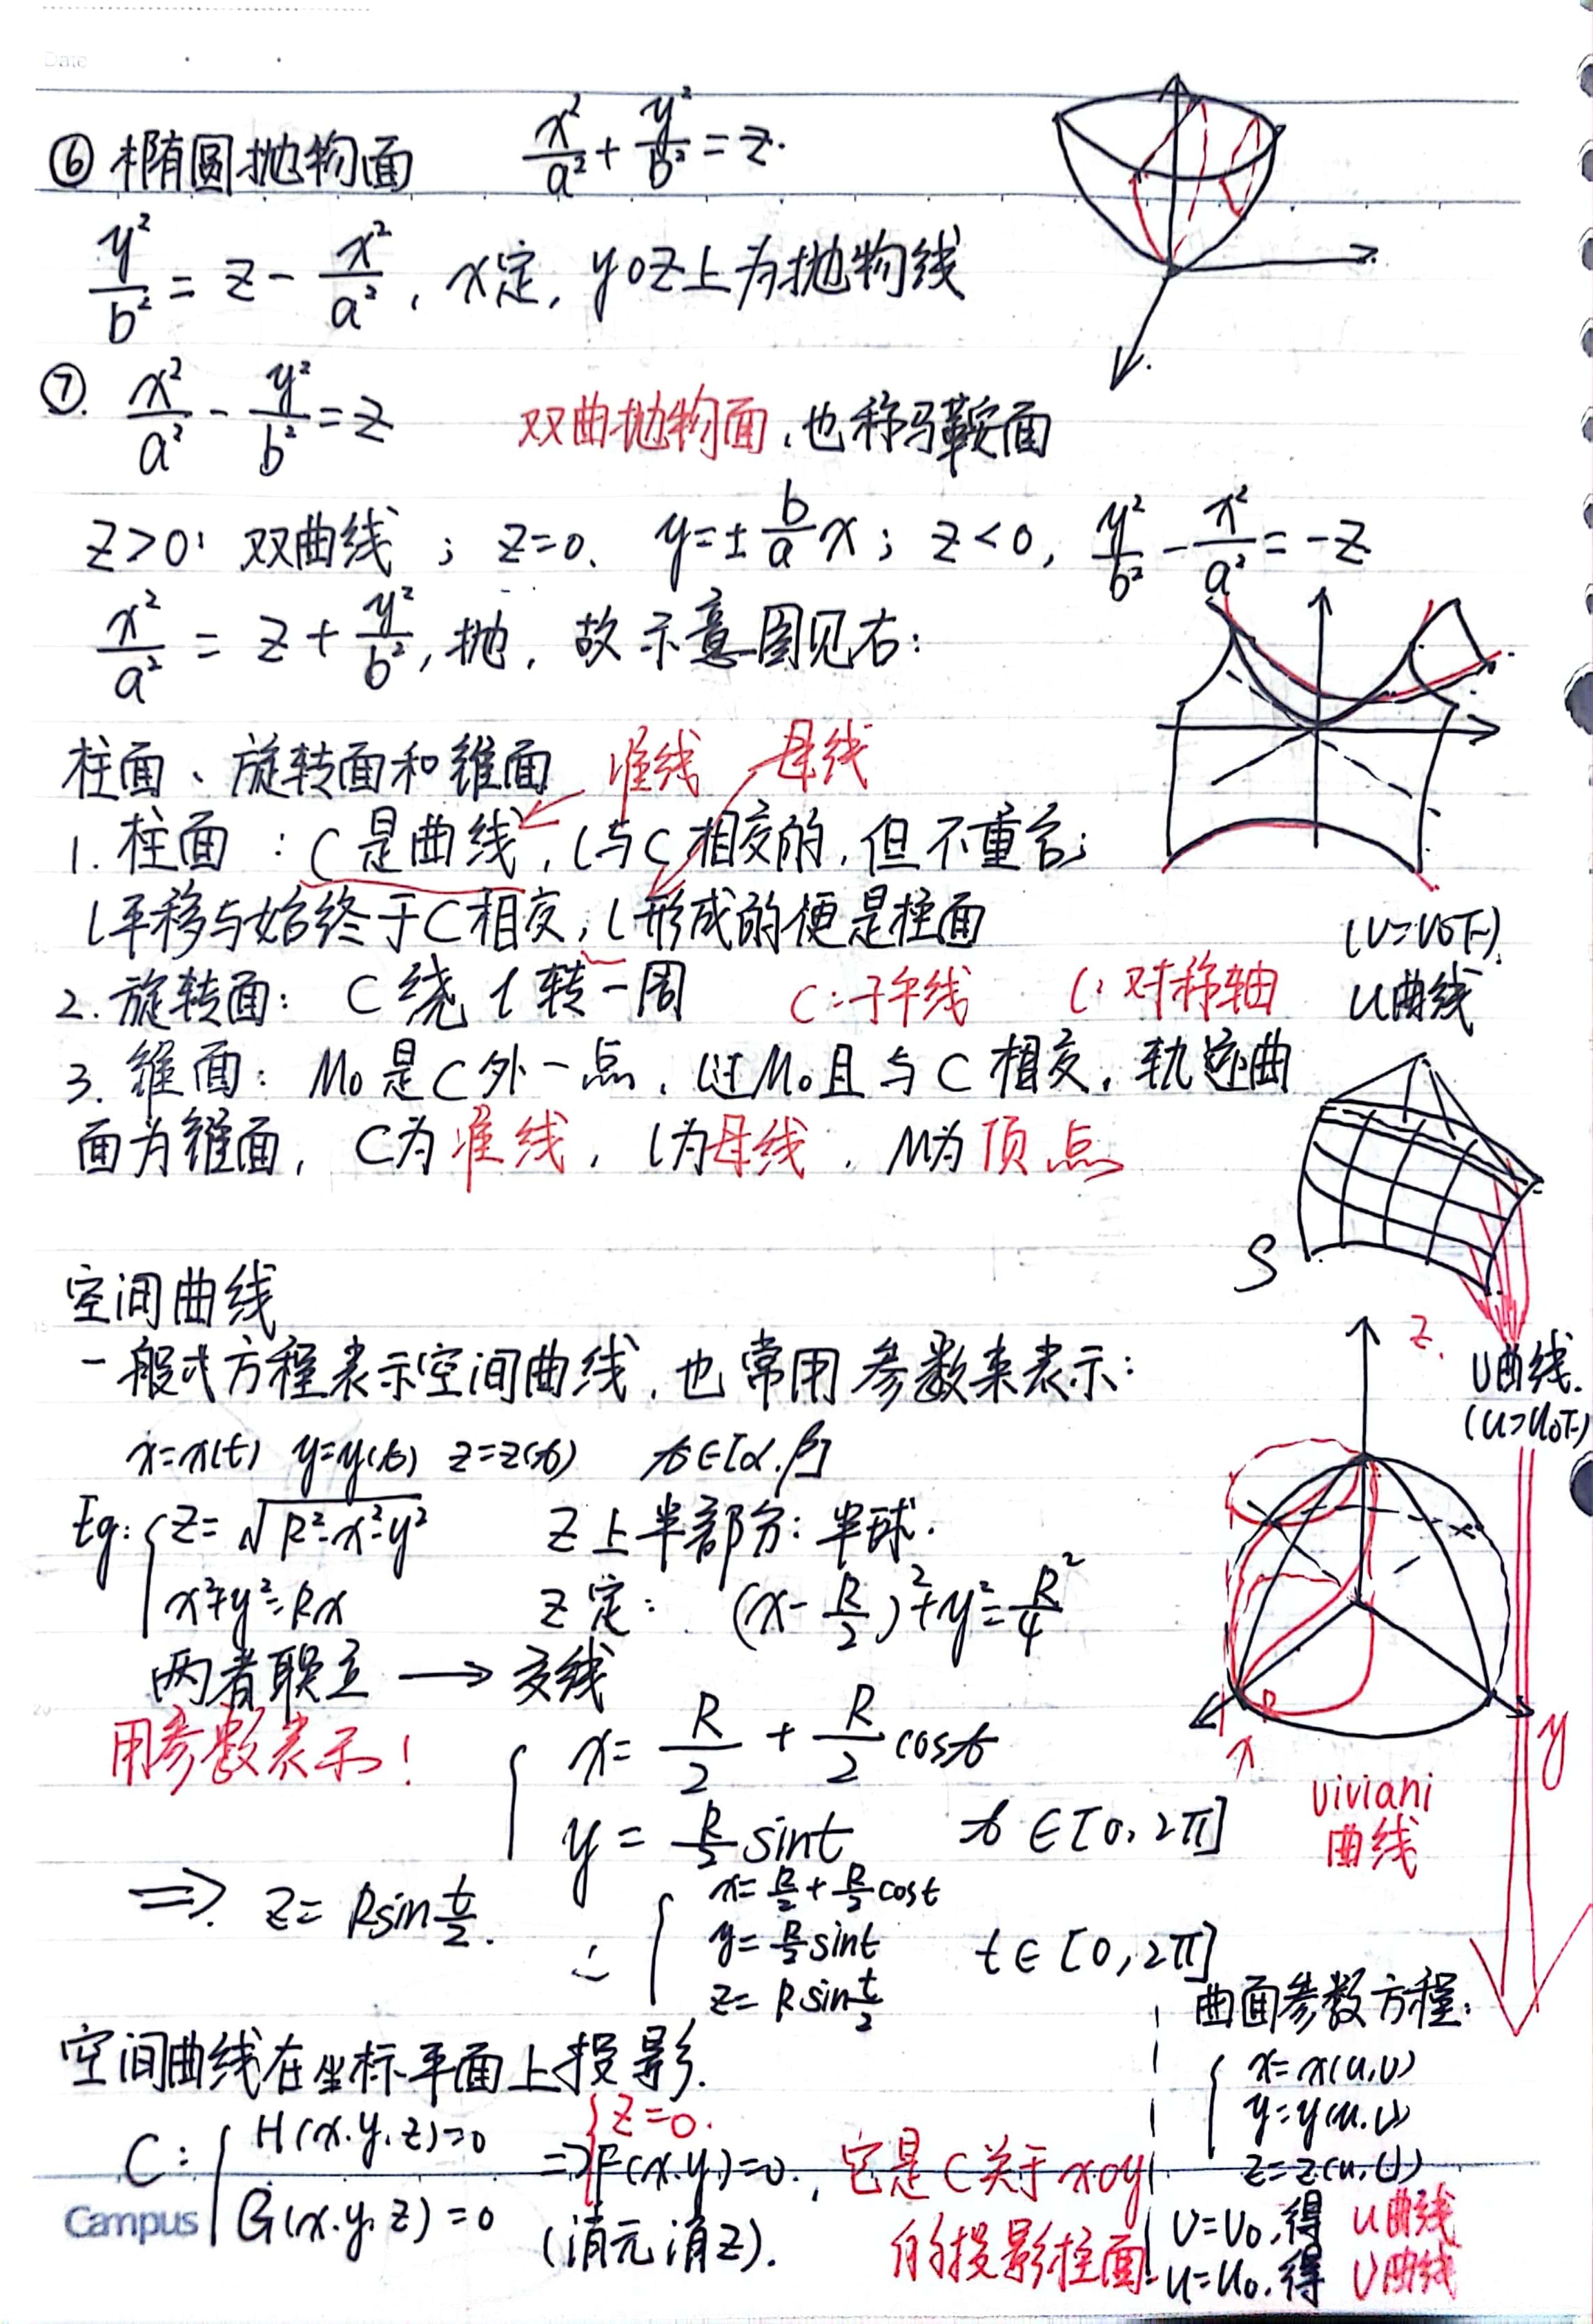 Date
⑥ 椭圆抛物面 x²/a² + y²/b² = z.
y²/b² = z - x²/a², x定, yoz上为抛物线
⑦. x²/a² - y²/b² = z 双曲抛物面,也称马鞍面
z>0: 双曲线; z=0. y=±b/a x; z<0, y²/b² - x²/a² = -z
x²/a² = z + y²/b², 抛, 故示意图见右:
柱面、旋转面和锥面 准线 母线
1. 柱面: C是曲线, l与C相交的,但不重合;
l平移与始终于C相交; l形成的便是柱面
2. 旋转面: C绕l转一周 C:子午线 l:对称轴
3. 锥面: M₀是C外一点, l过M₀且与C相交, 轨迹曲
面为锥面, C为准线, l为母线, M为顶点
(v=v₀下)
u曲线
S
v曲线.
(u=u₀下)
空间曲线
一般式方程表示空间曲线,也常用参数来表示:
x=x(t) y=y(t) z=z(t) t∈[α,β]
Eg: { z=√(R²-x²-y²) z上半部分: 半球.
x²+y²=Rx z定: (x-R/2)²+y²=R²/4
两者联立 → 交线
用参数表示!
{ x= R/2 + R/2 cost
y= R/2 sint t∈[0,2π]
⇒ z= Rsin t/2.
∴ { x=R/2+R/2cost
y=R/2sint t∈[0,2π]
z=Rsin t/2
z
x
R
y
viviani
曲线
空间曲线在坐标平面上投影.
C: { H(x.y.z)=0 ⇒ { z=0.
G(x.y.z)=0 F(x.y)=0., 它是C关于xoy
(消元消z). 的投影柱面.
曲面参数方程:
{ x=x(u,v)
y=y(u,v)
z=z(u,v)
v=v₀,得 u曲线
u=u₀.得 v曲线
Campus